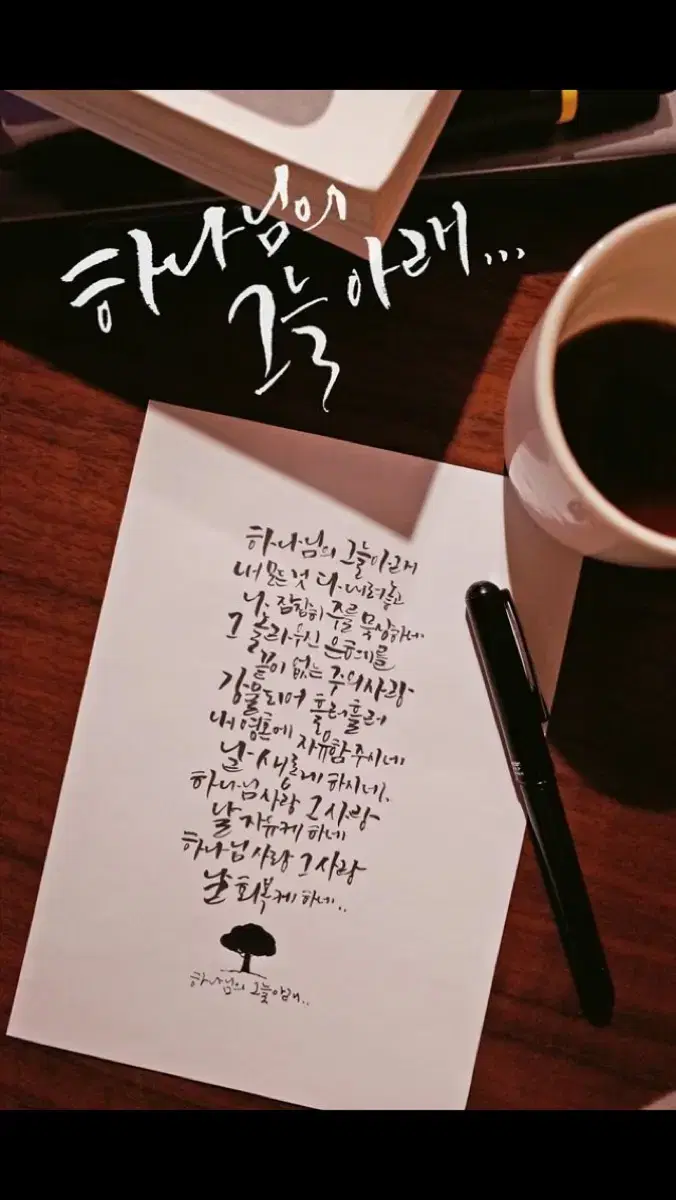 하나님의
그늘 아래...
하나님의 그늘아래
내 모든것 다 내려놓고
나 잠잠히 주를 묵상하네
그 놀라우신 은혜를
끝이 없는 주의사랑
강물되어 흘러흘러
내 영혼에 자유함 주시네
날 새롭게 하시네.
하나님 사랑 그 사랑
날 자유케 하네
하나님 사랑 그 사랑
날 회복케 하네..
하나님의 그늘아래..